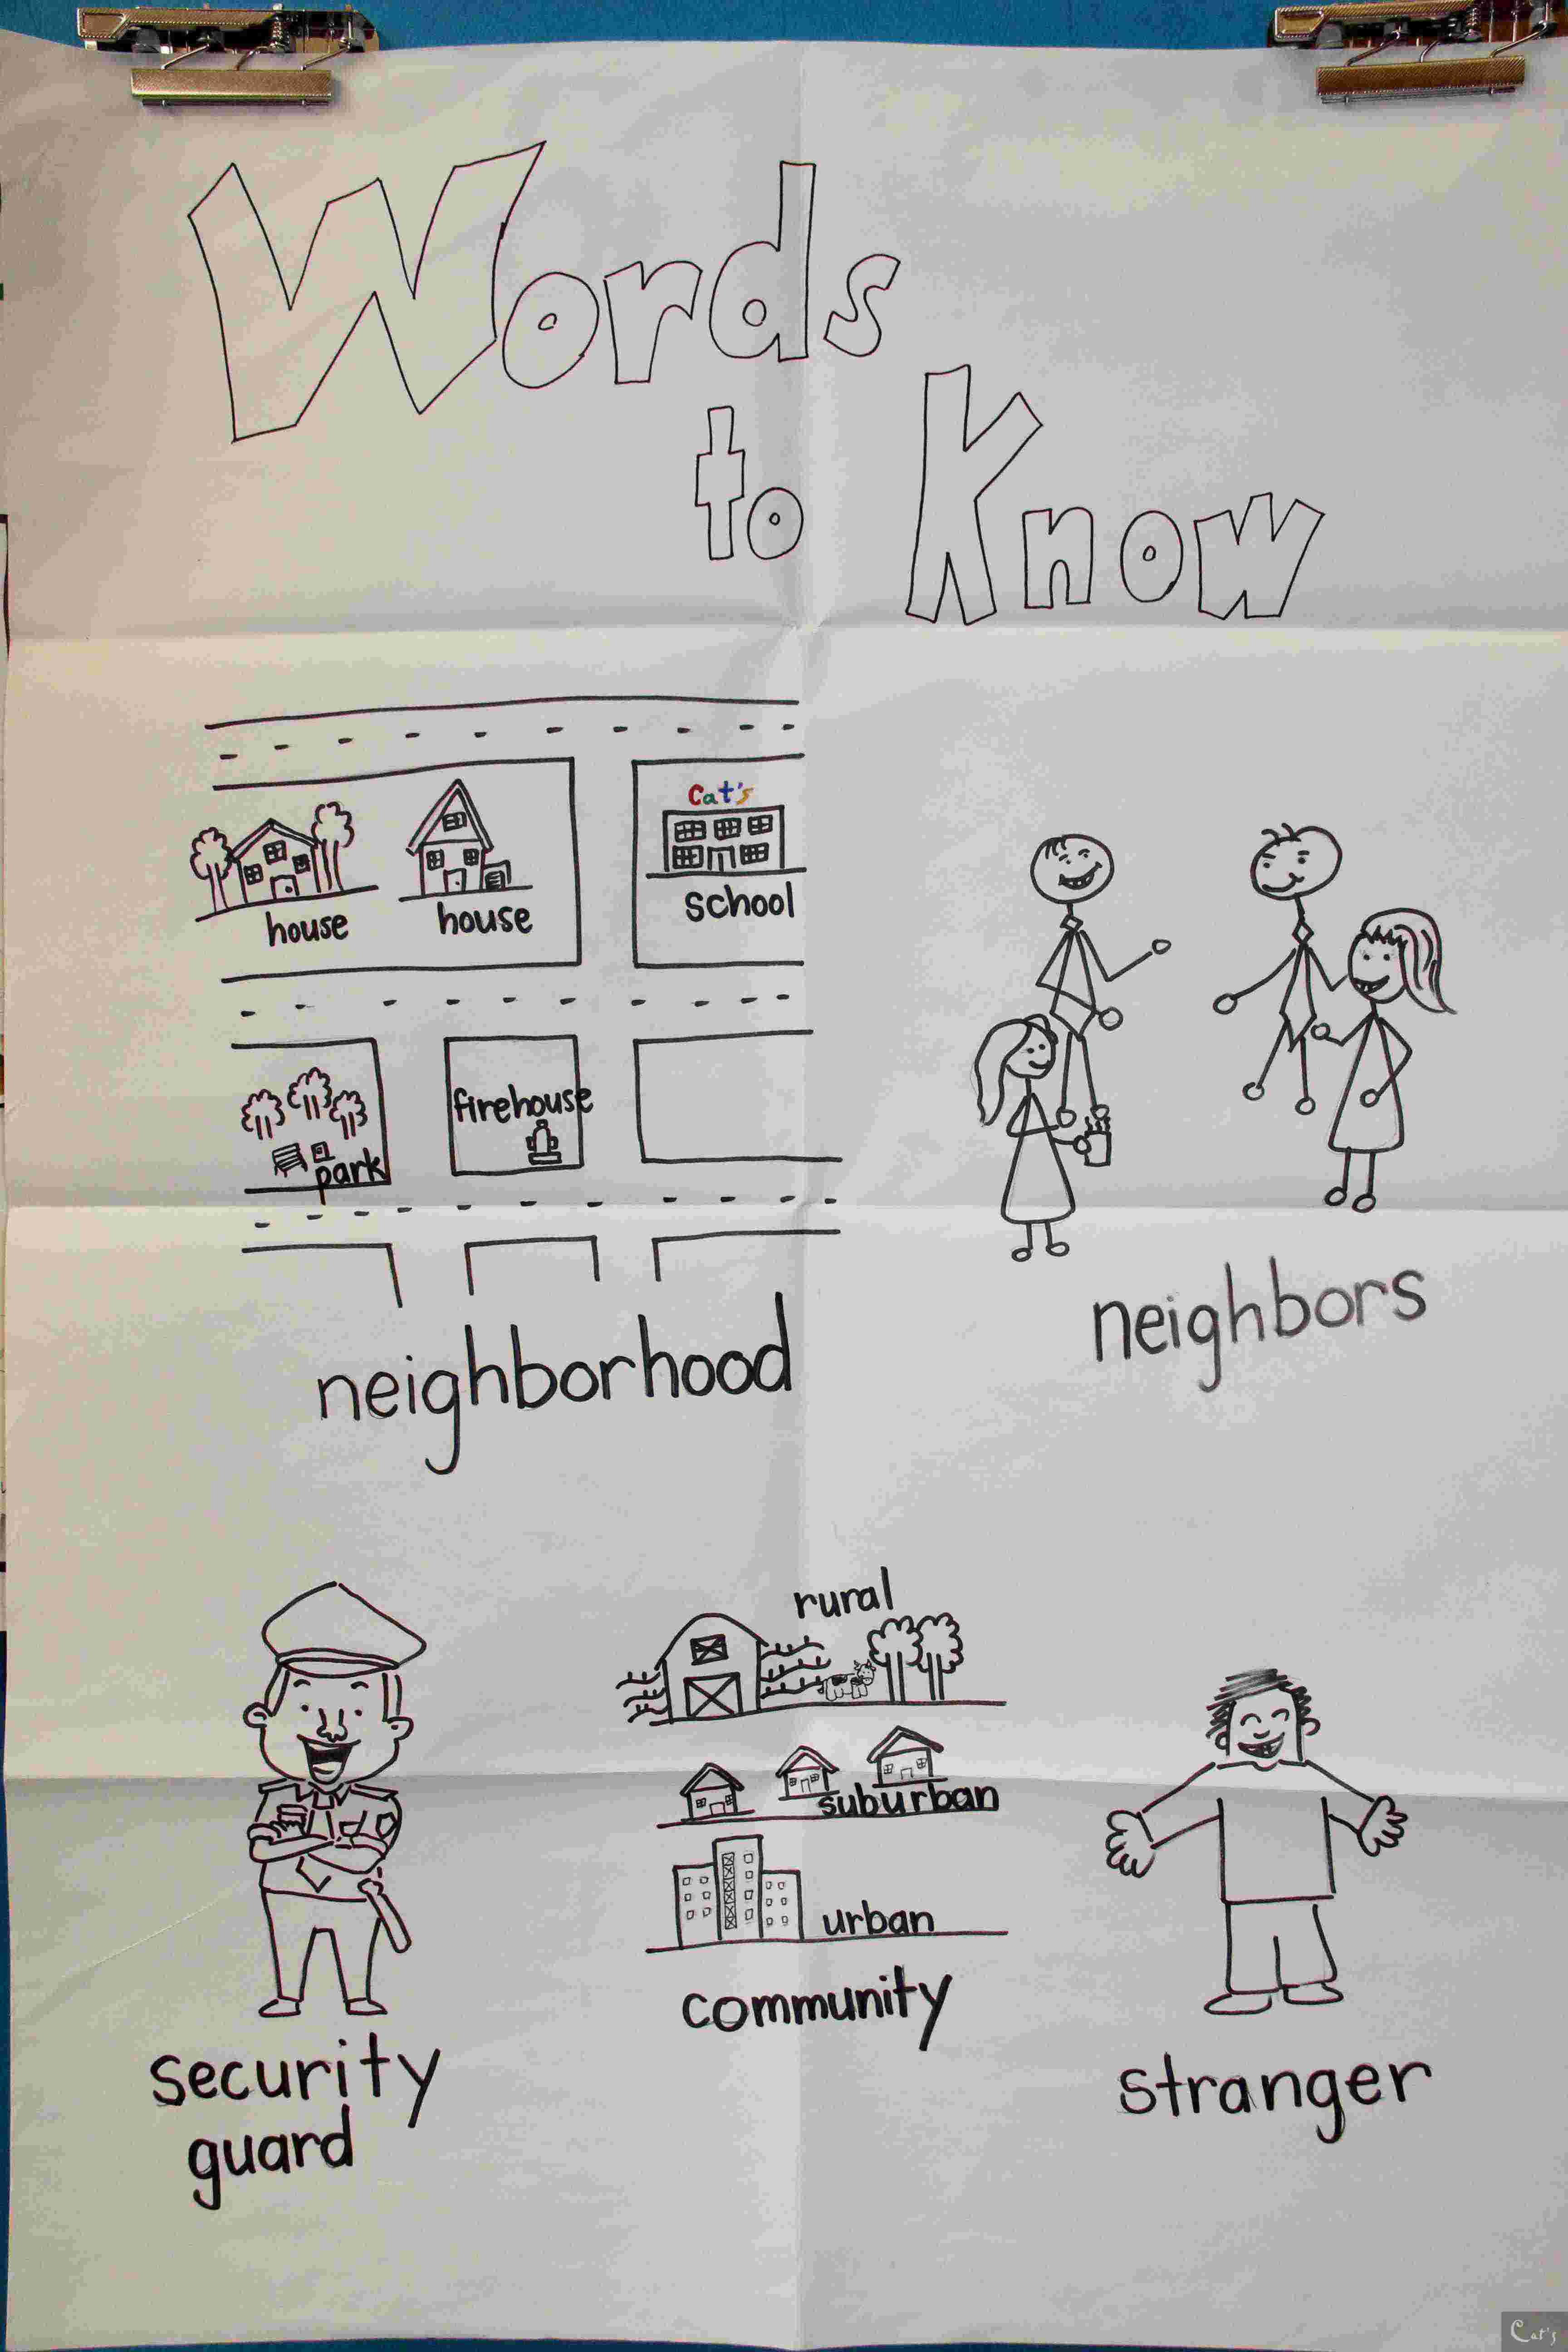 Words
to Know
Cat's
house
house
school
firehouse
park
neighborhood
neighbors
rural
suburban
urban
community
security
guard
stranger
Cat's